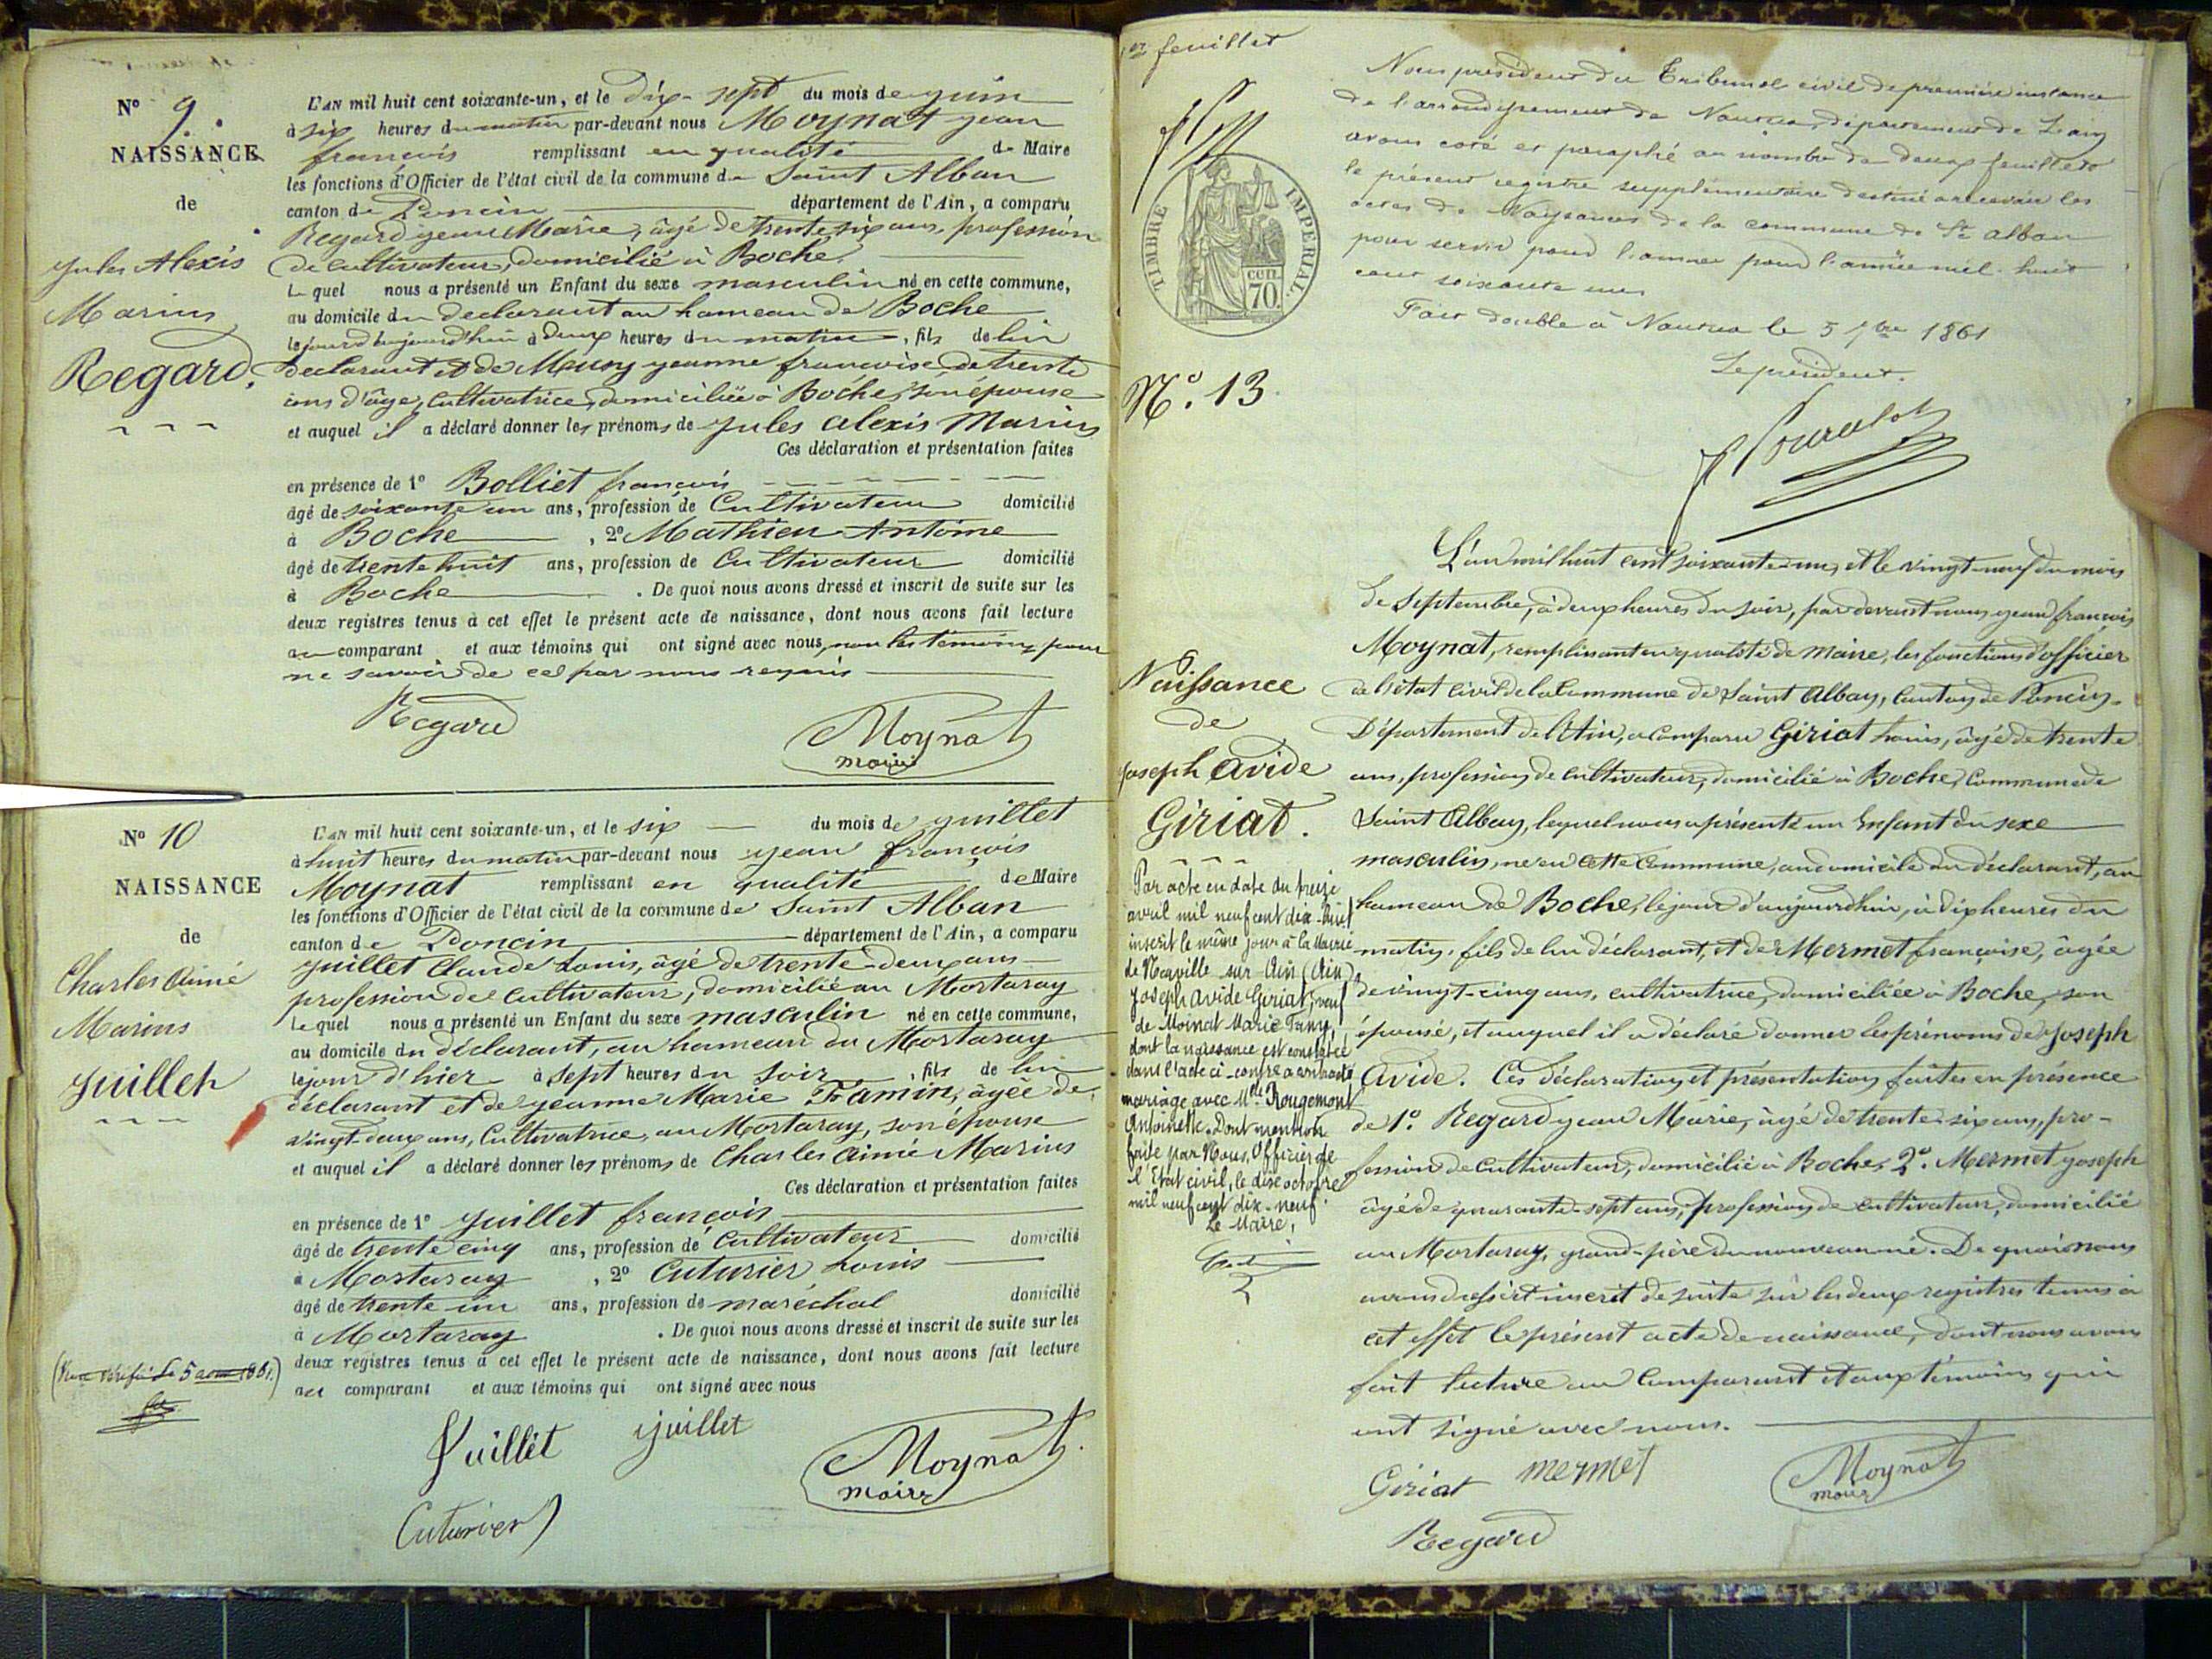 N° 9.
NAISSANCE
de
Jules Alexis
Marius
Regard.
L'AN mil huit cent soixante-un, et le dix-sept du mois de juin
à six heures du matin par-devant nous Moynat jean
françois remplissant en qualité de Maire
les fonctions d'Officier de l'état civil de la commune de Saint Alban
canton de Poncin département de l'Ain, a comparu
Regard jean Marie, âgé de trente six ans, profession
de cultivateur, domicilié à Boche.
Lequel nous a présenté un Enfant du sexe masculin né en cette commune,
au domicile du déclarant au hameau de Boche
le jourd'aujourd'hui à deux heures du matin, fils de lui
déclarant et de jeanne françoise de trente
ans d'âge, cultivatrice, domiciliée à Boche, son épouse
et auquel il a déclaré donner les prénoms de jules alexis Marius
Ces déclaration et présentation faites
en présence de 1° Bolliet françois
âgé de soixante un ans, profession de Cultivateur domicilié
à Boche, 2° Mathieu Antoine
âgé de trente huit ans, profession de Cultivateur domicilié
à Boche. De quoi nous avons dressé et inscrit de suite sur les
deux registres tenus à cet effet le présent acte de naissance, dont nous avons fait lecture
au comparant et aux témoins qui ont signé avec nous, non les témoins pour
ne savoir de ce par nous requis
Regard
Moynat
maire
N° 10
NAISSANCE
de
Charles aimé
Marius
juillet
(Vu et vérifié le 5 août 1861.)
L'AN mil huit cent soixante-un, et le six du mois de juillet
à huit heures du matin par-devant nous jean françois
Moynat remplissant en qualité de Maire
les fonctions d'Officier de l'état civil de la commune de Saint Alban
canton de Poncin département de l'Ain, a comparu
juillet Claude Louis, âgé de trente-deux ans
profession de cultivateur, domicilié au Mortaray
Lequel nous a présenté un Enfant du sexe masculin né en cette commune,
au domicile du déclarant, au hameau du Mortaray
le jour d'hier à sept heures du soir, fils de lui
déclarant et de jeanne Marie Framin, âgée de
vingt-deux ans, Cultivatrice, au Mortaray, son épouse
et auquel il a déclaré donner les prénoms de Charles aimé Marius
Ces déclaration et présentation faites
en présence de 1° juillet françois
âgé de trente cinq ans, profession de Cultivateur domicilié
à Mortaray, 2° Cuturier Louis
âgé de trente un ans, profession de maréchal domicilié
à Mortaray. De quoi nous avons dressé et inscrit de suite sur les
deux registres tenus à cet effet le présent acte de naissance, dont nous avons fait lecture
au comparant et aux témoins qui ont signé avec nous
Juillet juillet
Moynat
maire
Cuturier
feuillet
TIMBRE IMPERIAL
CEN.
70.
Nous président du Tribunal civil de première instance
de l'arrondissement de Nantua, département de l'ain
avons coté et paraphé au nombre de deux feuillets
le présent registre supplémentaire destiné à recevoir les
actes de Naissances de la commune de St alban
pour servir pour l'année pour l'année mil huit
cent soixante un
Fait double à Nantua le 5 7bre 1861
Le président.
N°. 13
Naissance
de
Joseph avide
Giriat.
Par acte en date du treize
avril mil neuf cent dix-huit
inscrit le même jour à la Mairie
de Neuville sur Ain (Ain)
Joseph avide Giriat, veuf
de Moinat Marie Fany,
dont la naissance est constatée
dans l'acte ci-contre a contracté
mariage avec Mlle Rougemont
Antoinette. Dont mention
faite par Nous, Officier de
l'Etat civil, le dix octobre
mil neuf cent dix-neuf.
Le Maire,
L'an mil huit cent soixante-un, et le vingt-neuf du mois
de Septembre, à deux heures du soir, par devant nous jean françois
Moynat, remplissant en qualité de Maire, les fonctions d'officier
de l'état civil de la Commune de Saint Alban, Canton de Poncin,
Département de l'Ain, a comparu Giriat Louis, âgé de trente
ans, profession de Cultivateur, domicilié à Boche, Commune de
Saint Alban, lequel nous a présenté un Enfant du sexe
masculin, né en cette Commune, au domicile du déclarant, au
hameau de Boche, le jour d'aujourd'hui, à dix heures du
matin, fils de lui déclarant, et de Mermet françoise, âgée
de vingt-cinq ans, cultivatrice, domiciliée à Boche, son
épouse, et auquel il a déclaré donner les prénoms de Joseph
Avide. Ces déclaration et présentation faites en présence
de 1°. Regard jean Marie, âgé de trente-six ans, pro-
fession de Cultivateur, domicilié à Boche, 2°. Mermet joseph
âgé de quarante-sept ans, profession de cultivateur, domicilié
au Mortaray, grand-père du nouveau né. De quoi nous
avons dressé et inscrit de suite sur les deux registres tenus à
cet effet le présent acte de naissance, dont nous avons
fait lecture au Comparant et aux témoins qui
ont signé avec nous.
Giriat mermet
Moynat
maire
Regard